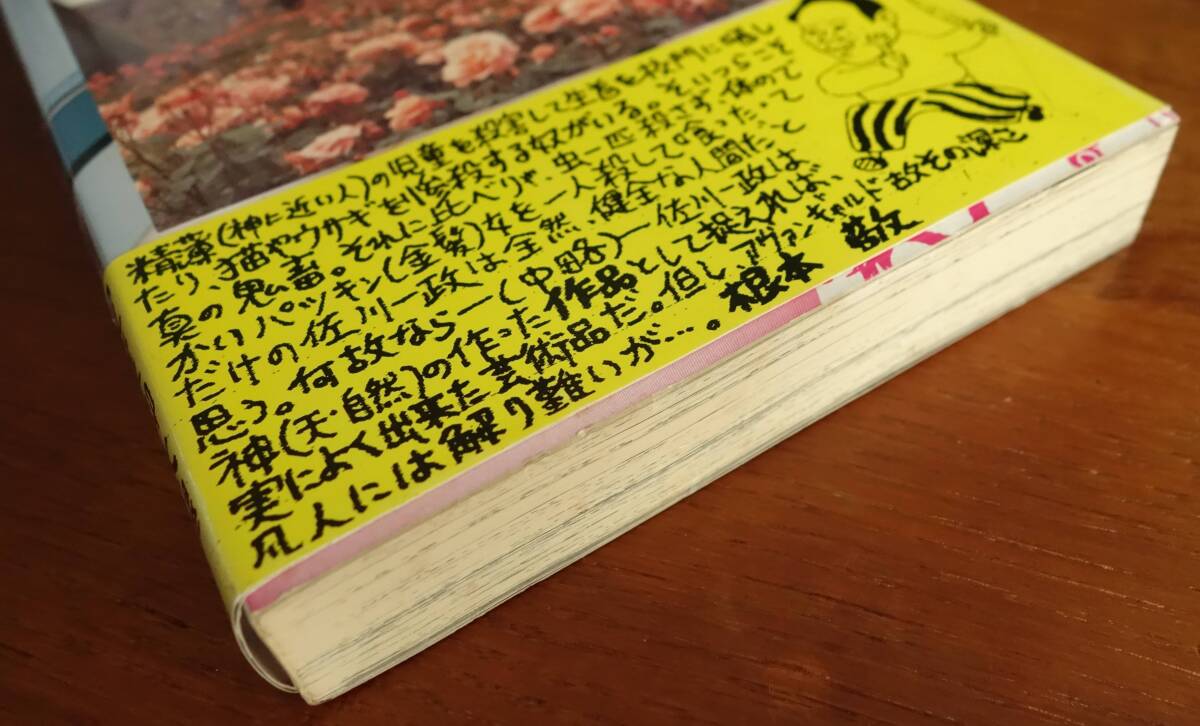 精薄(神に近い人)の児童を殺害して生首を校門に晒し
たり、猫やウサギを引き殺する奴がいる。そいつらこそ
真の鬼畜。それに比べりゃ、虫一匹殺さず、
がいりパツキン(金髪)女を一人殺して喰った、って
だけの佐川一政は全然、健全な人間だ、と
思う。何故なら―(中略)―佐川一政は
神(天・自然)の作った作品として捉えれば、
実によく出来た芸術品だ。但し、アヴァンギャルド故その深さ
凡人には解り難いが…。根本 敬